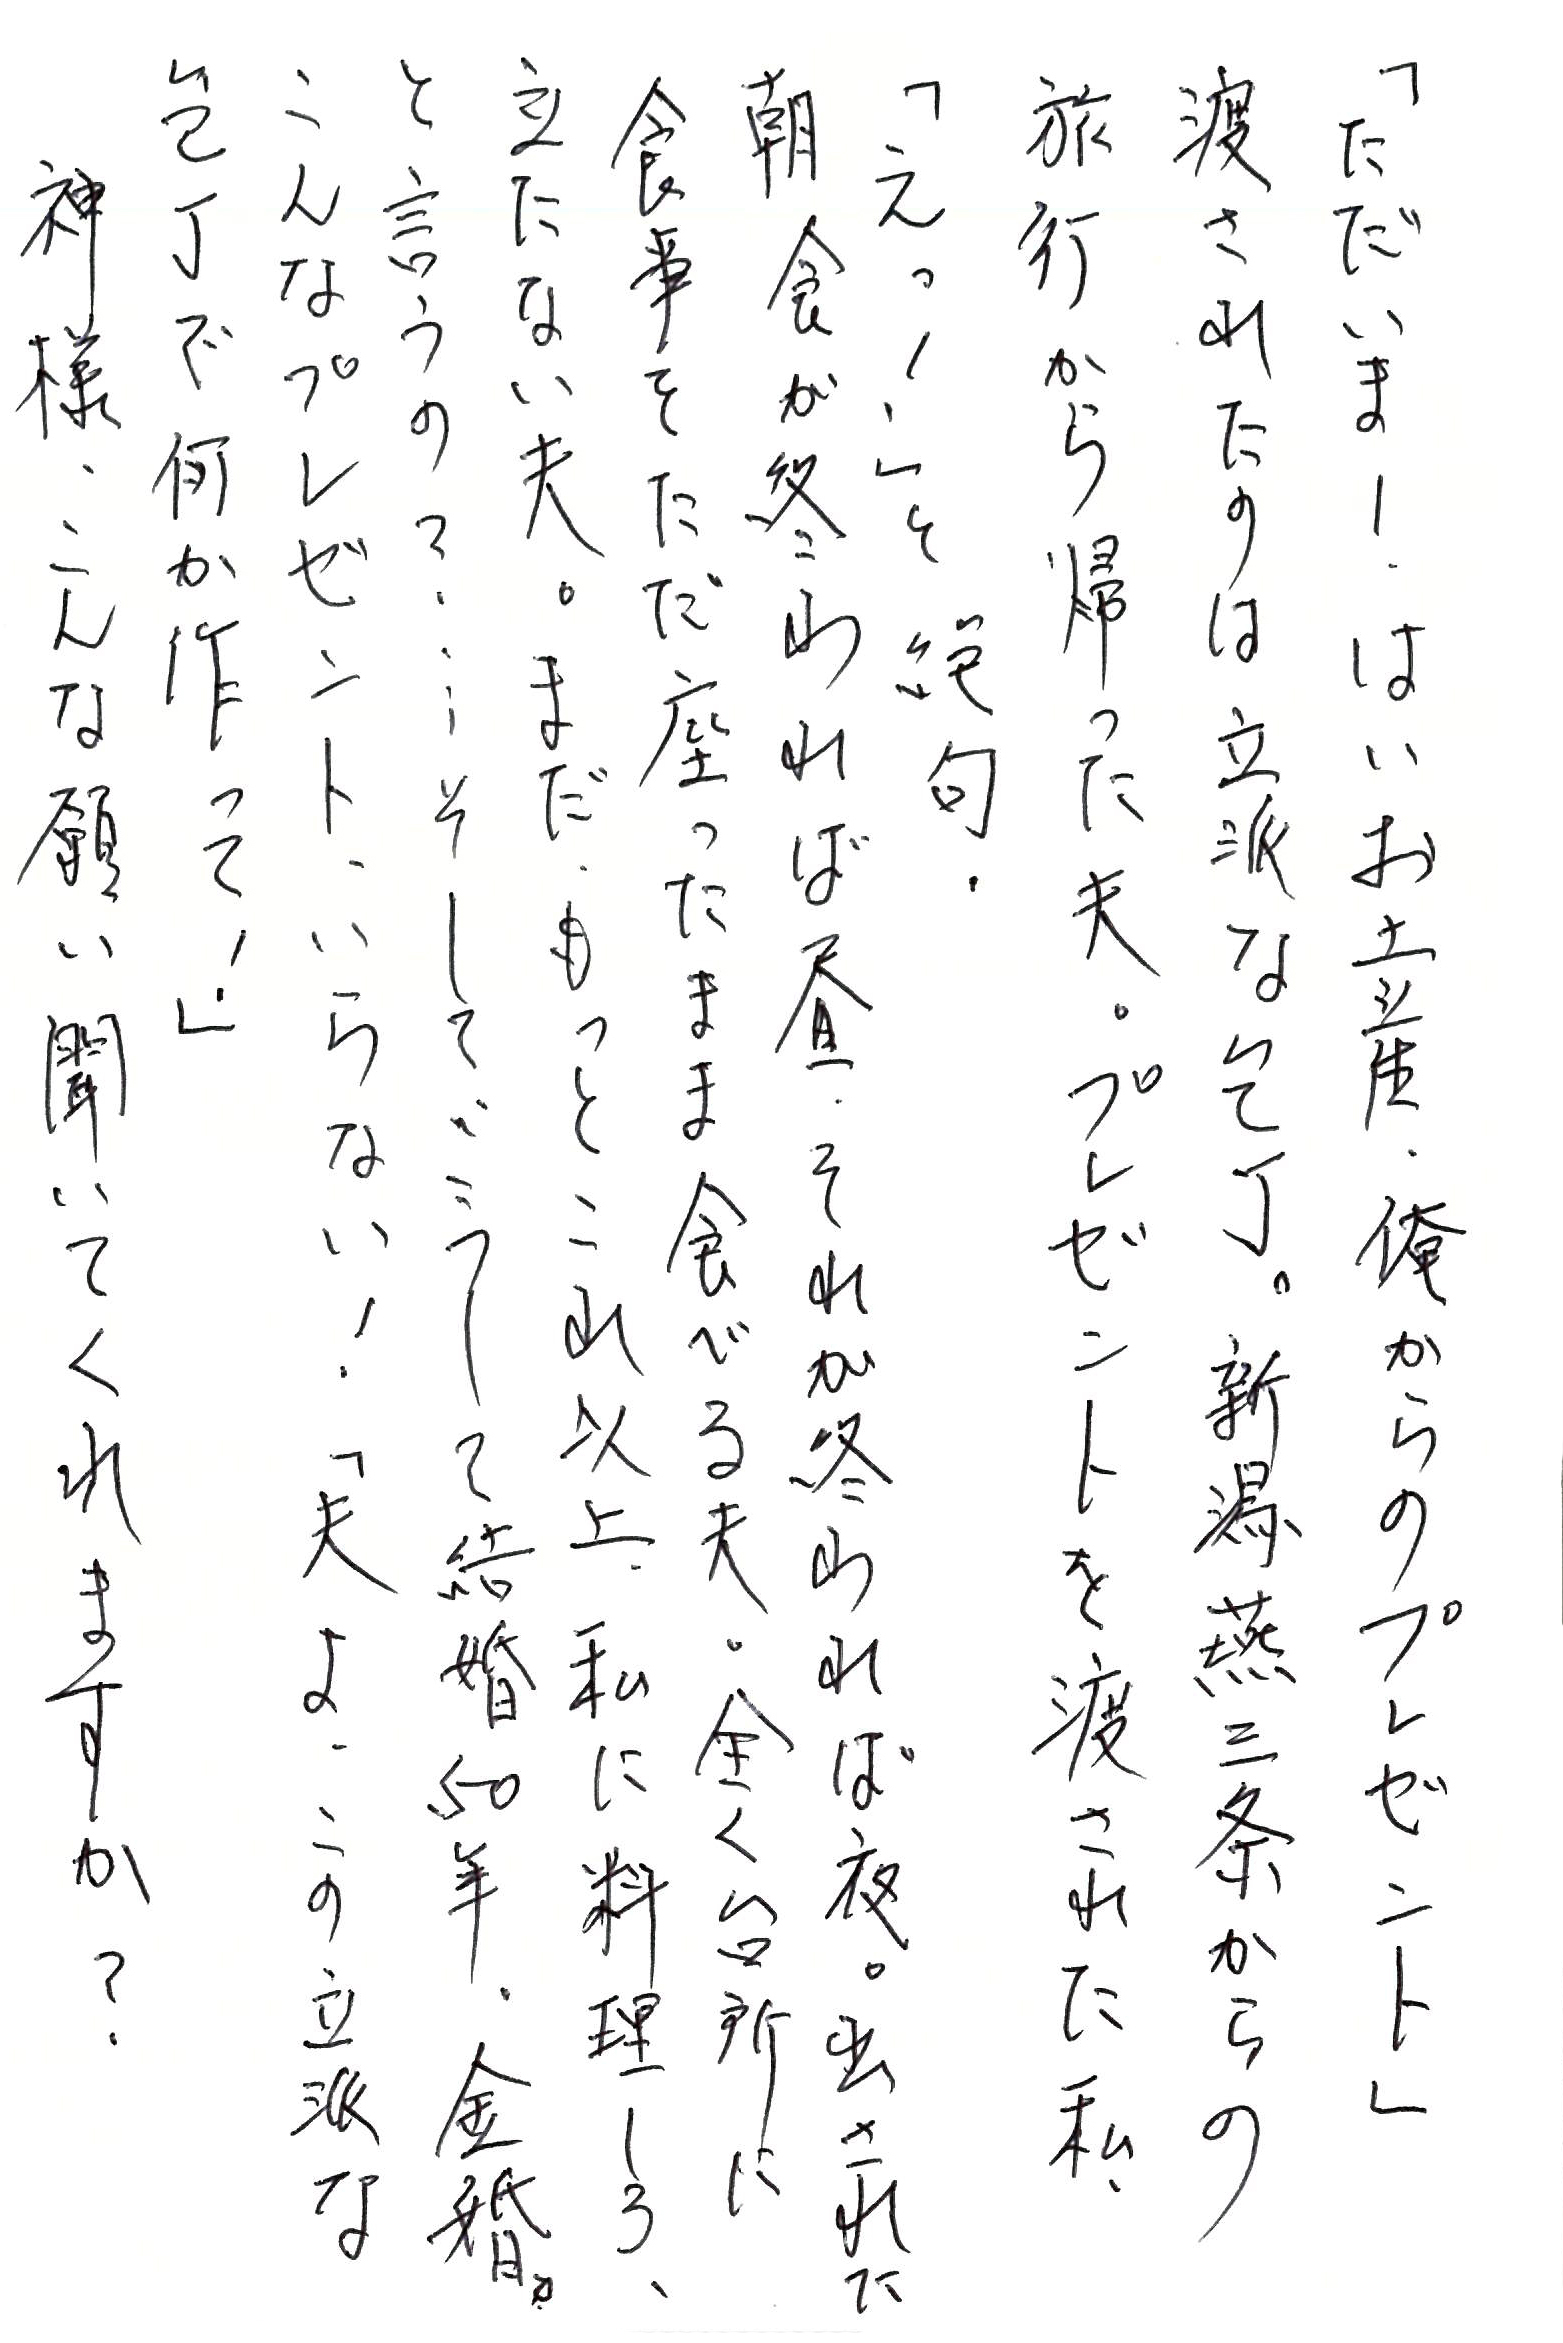 「ただいま！はいお土産、俺からのプレゼント」
渡されたのは立派な包丁。新潟燕三条からの
旅行から帰った夫。プレゼントを渡された私、
「えっ！」と絶句。
朝食が終われば昼、それが終われば夜。出された
食事をただ座ったまま食べる夫。全く台所に
立たない夫。まだ、もっとこれ以上、私に料理しろ、
と言うの？…そしてどうして結婚50年、金婚。
こんなプレゼント、いらない！「夫よ、この立派な
包丁で何か作って！」
神様、こんな願い聞いてくれますか？